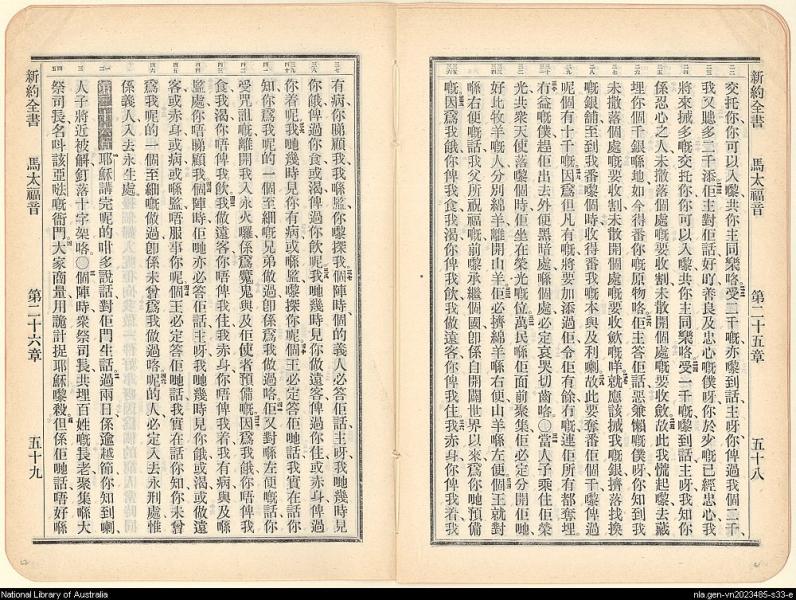 新約全書 馬太福音 第二十五章 五十八
交托你你可以入嚟共你主同樂咯受二千嘅亦嚟到話主呀你俾過我個二千
我又賺多二千添佢主對佢話好吖善良及忠心嘅僕呀你於少嘅已經忠心我
將來𢬿多嘅交托你你可以入嚟共你主同樂咯受一千嘅嚟到話主呀我知你
係忍心之人未撒落個處嘅要收割未散開個處嘅要收斂故此我慌起嚟去藏
埋你個千銀喺地如今得番你嘅原物咯佢主答佢話惡兼懶嘅僕呀你知到我
未撒落個處嘅要收割未散開個處嘅要收斂嘅咩就應該𢬿我嘅銀擠落找換
嘅銀舖至到我番嚟個時收得番我嘅本與及利喇故此要奪番佢個千嚟俾過
呢個有十千嘅因爲但凡有嘅將要加添過佢令佢有餘冇嘅連佢所有都奪埋
冇益嘅僕趕佢出去外便黑暗處喺個處必定哀哭切齒咯〇當人子乘住佢榮
光共衆天使落嚟個時佢坐在榮光嘅位萬民喺佢面前聚集佢必定分開佢哋
好比牧羊嘅人分別綿羊離開山羊佢必擠綿羊喺右便山羊喺左便個王就對
喺右便嘅話我父所祝福嘅前嚟承繼個國卽係自開闢世界以來爲你哋預備
嘅因爲我餓你俾我食我渴你俾我飲我做遠客你俾我住我赤身你俾我着我
有病你睇顧我我喺監你嚟探我個陣時個的義人必答佢話主呀我哋幾時見
你餓俾過你食或渴俾過你飲呢我哋幾時見你做遠客俾過你住或赤身俾過
你着呢我哋幾時見你有病或喺監嚟探你呢個王必定答佢哋話我實在話你
知你爲我呢的一個至細嘅兄弟做過卽係爲我做過咯佢又對喺左便嘅話你
受咒詛嘅離開我入永火囉係爲魔鬼與及佢使者預備嘅因爲我餓你唔俾我
食我渴你唔俾我飲我做遠客你唔俾我住我赤身你唔俾我着我有病與及喺
監處你唔睇顧我個陣時佢哋亦必答佢話主呀我哋幾時見你餓或渴或做遠
客或赤身或病或喺監唔服事你呢個王必定答佢哋話我實在話你知你未曾
爲我呢的一個至細嘅做過卽係未曾爲我做過咯呢的人必定入去永刑處惟
係義人入去永生處
第二十六章 耶穌講完呢的咁多說話對佢門生話過兩日係逾越節你知到喇
人子將近被解釘落十字架咯〇個陣時衆祭司長共埋百姓嘅長老聚集喺大
祭司長名呌該亞呔嘅衙門大家商量用詭計捉耶穌嚟殺但係佢哋話唔好喺
新約全書 馬太福音 第二十六章 五十九
National Library of Australia
nla.gen-vn2023485-s33-e